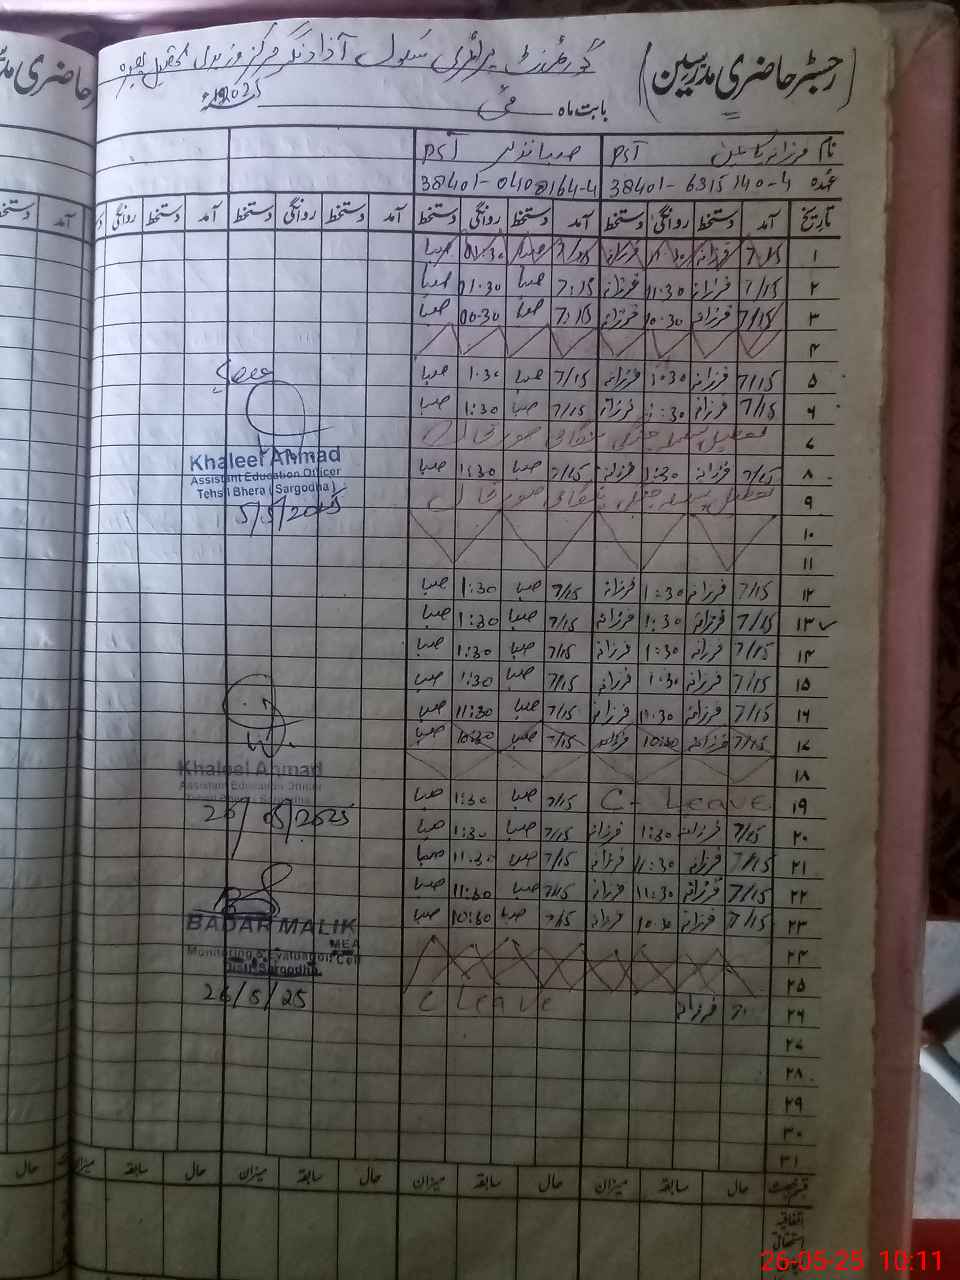 رجسٹر حاضری مدرسین
گورنمنٹ پرائمری سکول آزاد نگر مرکز تحصیل بھیرہ
بابت ماہ مئی 2025
نام فرزانہ PST صبا نذیر PST
عہدہ 38401-6315140-4 38401-0408164-4
تاریخ آمد دستخط روانگی دستخط آمد دستخط روانگی دستخط آمد دستخط روانگی دستخط آمد دستخط روانگی
۱ 7/15 فرزانہ فرزانہ صبا صبا
۲ 7/15 فرزانہ 11:30 فرزانہ 7:15 صبا 11:30 صبا
۳ 7/15 فرزانہ 10:30 فرزانہ 7:15 صبا صبا
۴
۵ 7/15 فرزانہ 1:30 فرزانہ 7/15 صبا 1:30 صبا
۶ 7/15 فرزانہ 1:30 فرزانہ 7/15 صبا 1:30 صبا
۷ تعطیل بسلسلہ جنگی ہنگامی صورتحال
۸ 7/15 فرزانہ 1:30 فرزانہ 7/15 صبا 1:30 صبا
۹ تعطیل بسلسلہ جنگی ہنگامی صورتحال
۱۰
۱۱
۱۲ 7/15 فرزانہ 1:30 فرزانہ 7/15 صبا 1:30 صبا
۱۳ 7/15 فرزانہ 1:30 فرزانہ 7/15 صبا 1:30 صبا
۱۴ 7/15 فرزانہ 1:30 فرزانہ 7/15 صبا 1:30 صبا
۱۵ 7/15 فرزانہ 1:30 فرزانہ 7/15 صبا 1:30 صبا
۱۶ 7/15 فرزانہ 11:30 فرزانہ 7/15 صبا 11:30 صبا
۱۷ 7/15 فرزانہ 10:30 فرزانہ 7/15 صبا 10:30 صبا
۱۸
۱۹ C- Leave 7/15 صبا 1:30 صبا
۲۰ 7/15 فرزانہ 1:30 فرزانہ 7/15 صبا 1:30 صبا
۲۱ 7/15 فرزانہ 11:30 فرزانہ 7/15 صبا 11:30 صبا
۲۲ 7/15 فرزانہ 11:30 فرزانہ 7/15 صبا 11:30 صبا
۲۳ 7/15 فرزانہ 10:30 فرزانہ 7/15 صبا 10:30 صبا
۲۴
۲۵
۲۶ فرزانہ C Leave
۲۷
۲۸
۲۹
۳۰
۳۱
Khaleel Ahmad
Assistant Education Officer
Tehsil Bhera (Sargodha)
5/5/2025
Khaleel Ahmad
Assistant Education Officer
Tehsil Bhera (Sargodha)
20/05/2025
BADAR MALIK
MEA
Monitoring & Evaluation Cell
Distt: Sargodha
26/5/25
قسم رخصت حال سابقہ میزان حال سابقہ میزان حال سابقہ میزان حال سابقہ میزان
اتفاقیہ
استحقاقی
26-05-25 10:11